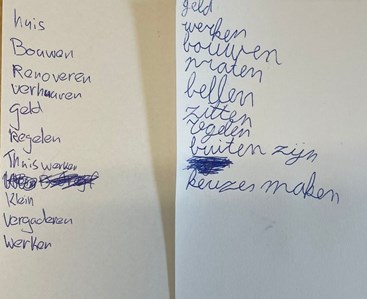 huis
Bouwen
Renoveren
verhuuren
geld
Regelen
Thuis werken
Klein
vergaderen
werken
geld
werken
bouwen
praten
bellen
zitten
regelen
buiten zijn
keuzes maken